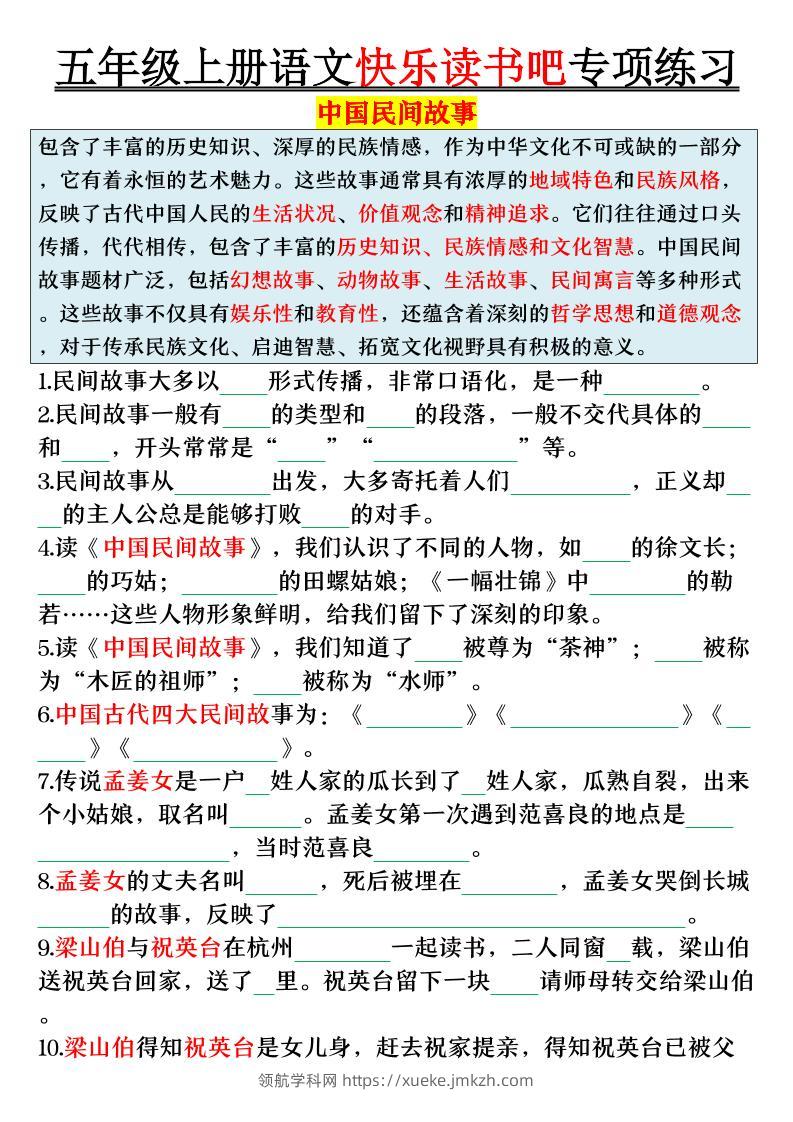 五年级上册语文快乐读书吧专项练习
中国民间故事
包含了丰富的历史知识、深厚的民族情感，作为中华文化不可或缺的一部分
，它有着永恒的艺术魅力。这些故事通常具有浓厚的地域特色和民族风格，
反映了古代中国人民的生活状况、价值观念和精神追求。它们往往通过口头
传播，代代相传，包含了丰富的历史知识、民族情感和文化智慧。中国民间
故事题材广泛，包括幻想故事、动物故事、生活故事、民间寓言等多种形式
。这些故事不仅具有娱乐性和教育性，还蕴含着深刻的哲学思想和道德观念
，对于传承民族文化、启迪智慧、拓宽文化视野具有积极的意义。
1.民间故事大多以____形式传播，非常口语化，是一种________。
2.民间故事一般有____的类型和____的段落，一般不交代具体的____
和____，开头常常是“____”“____________”等。
3.民间故事从________出发，大多寄托着人们__________，正义却__
__的主人公总是能够打败____的对手。
4.读《中国民间故事》，我们认识了不同的人物，如____的徐文长；
____的巧姑；________的田螺姑娘；《一幅壮锦》中________的勒
若……这些人物形象鲜明，给我们留下了深刻的印象。
5.读《中国民间故事》，我们知道了____被尊为“茶神”；____被称
为“木匠的祖师”；____被称为“水师”。
6.中国古代四大民间故事为：《________》《______________》《__
____》《____________》。
7.传说孟姜女是一户__姓人家的瓜长到了__姓人家，瓜熟自裂，出来
个小姑娘，取名叫______。孟姜女第一次遇到范喜良的地点是____
________________，当时范喜良________。
8.孟姜女的丈夫名叫______，死后被埋在________，孟姜女哭倒长城
______的故事，反映了__________________________________。
9.梁山伯与祝英台在杭州________一起读书，二人同窗__载，梁山伯
送祝英台回家，送了__里。祝英台留下一块____请师母转交给梁山伯
。
10.梁山伯得知祝英台是女儿身，赶去祝家提亲，得知祝英台已被父
领航学科网 https://xueke.jmkzh.com